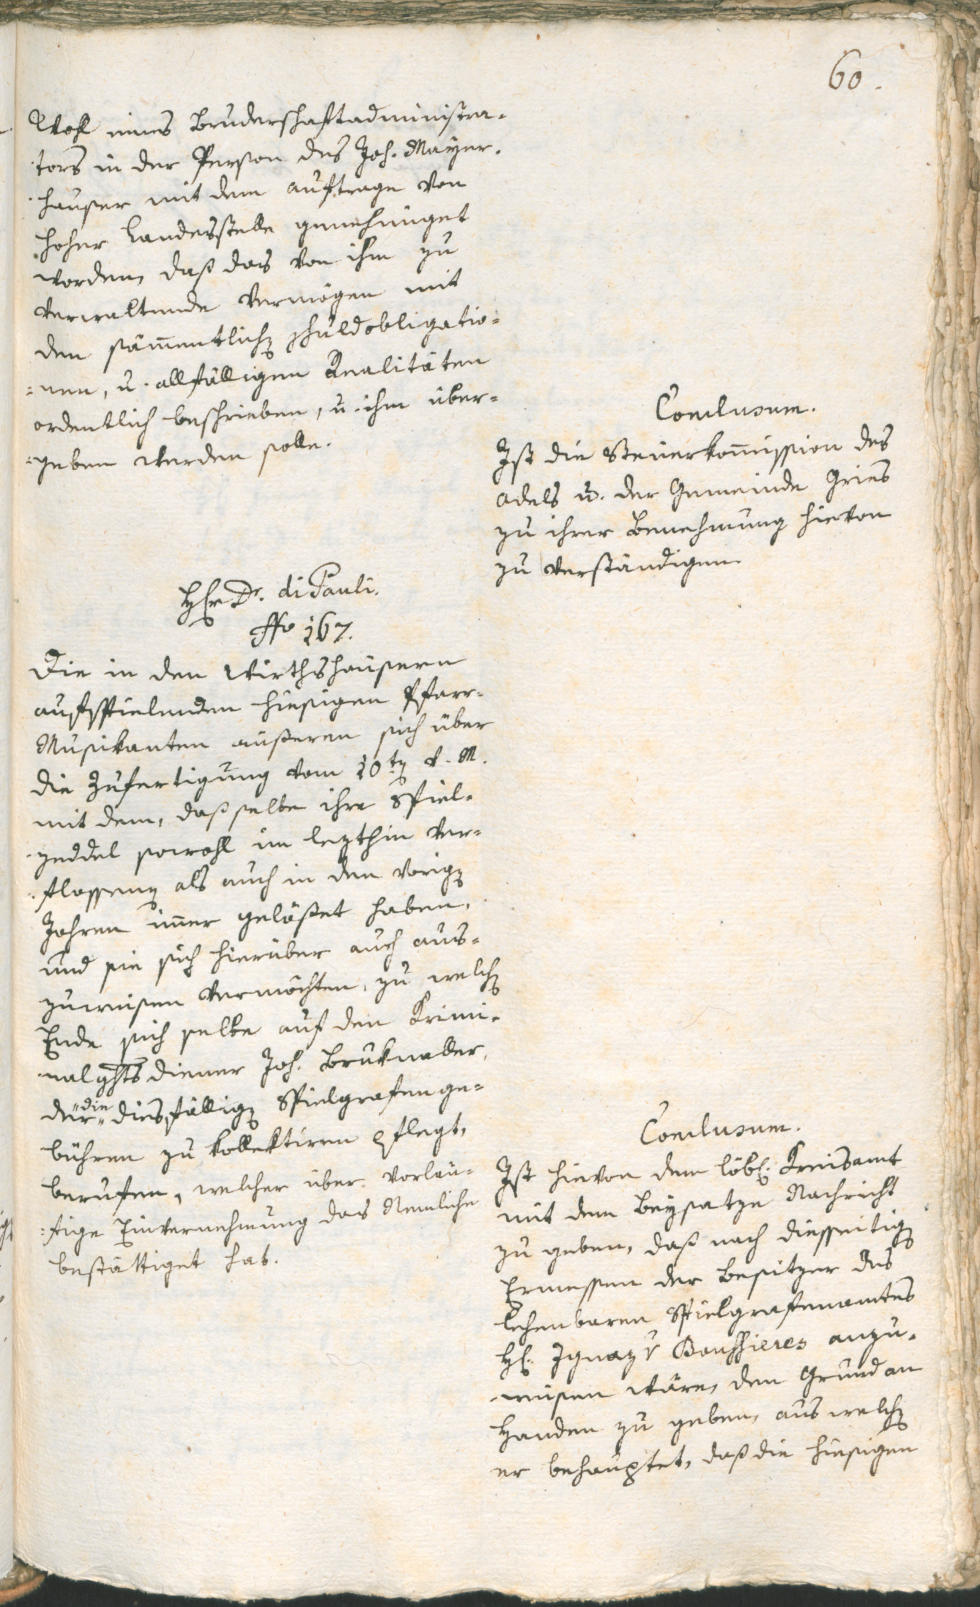 60.
Wahl eines Bruderschaftadministra-
tors in der Person des Joh. Mayer-
hauser mit dem auftrage von
hoher Landesstelle genehmiget
worden, daß das von ihm zu
verwaltende Vermögen mit
den sämmentlichen schuldobligatio-
nen, u. allfälligen Realitäten
ordentlich beschrieben, u. ihm über-
geben werden solle.
Conclusum.
Ist die Steuerkommission des
adels u. der Gemeinde Gries
zu ihrer Benehmung hievon
zu verständigen
Herr Dr. di Pauli.
Nro 167.
Die in den Wirthshäusern
aufspielenden hiesigen Pfarr-
Musikanten äußeren sich über
die Zufertigung vom 10ten d. M.
mit dem, daß selbe ihre Spiel-
zeddel sowohl im lezthin ver-
flossenen als auch in den vorigen
Jahren immer gelößet haben,
und sie sich hierüber auch aus-
zuweisen vermöchten, zu welchem
Ende sich selbe auf den Krimi-
nalghts diener Joh. Bruknaller,
der die diesfälligen Spielgrafenge-
bühren zu kollektiren pflegt,
berufen, welcher über vorläu-
fige Einvernehmung das Nemliche
bestättiget hat.
Conclusum.
Ist hievon dem löbl: Kreisamt
mit dem Beysatze Nachricht
zu geben, daß nach diesseitigen
Ermessen der Besitzer des
lehenbaren Spielgrafenamtes
H: Ignaz v Boussieres anzu-
weisen wäre, den Grund an
Handen zu geben, aus welchem
er behauptet, daß die hiesigen